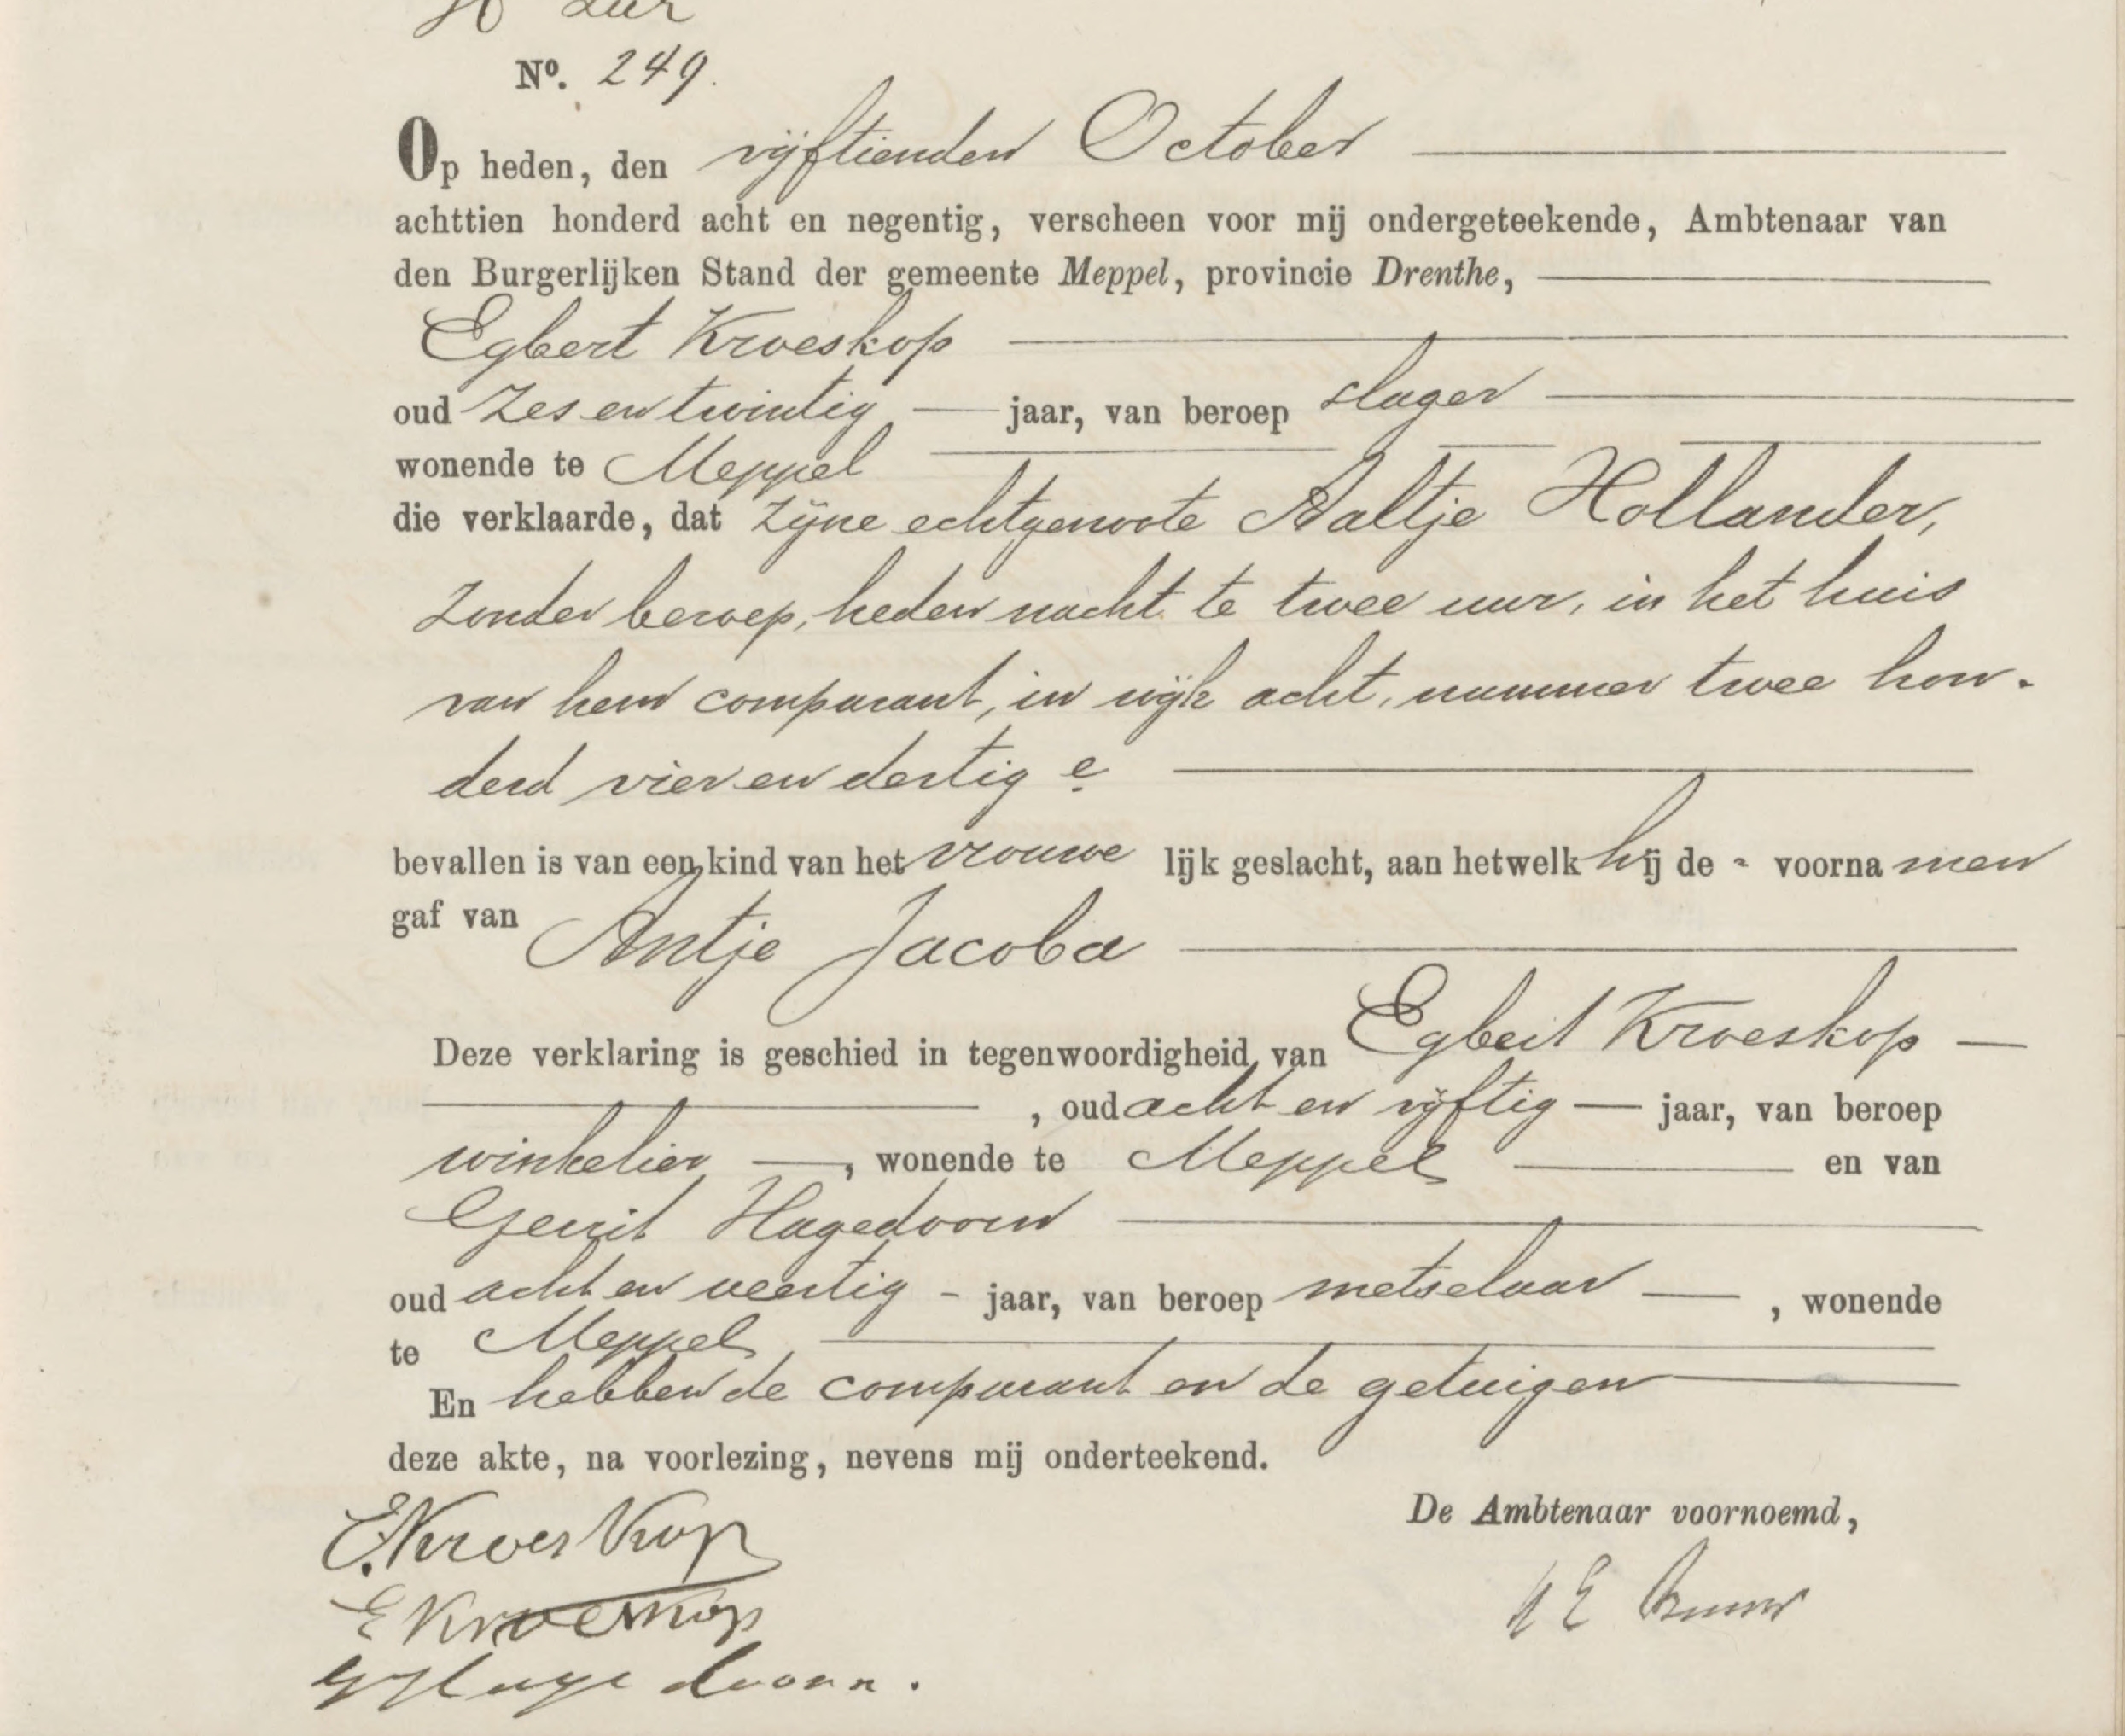 No. 249.
Op heden, den vijftienden October
achttien honderd acht en negentig, verscheen voor mij ondergeteekende, Ambtenaar van
den Burgerlijken Stand der gemeente Meppel, provincie Drenthe,
Egbert Kroeskop
oud zes en twintig jaar, van beroep slager
wonende te Meppel
die verklaarde, dat zijne echtgenoote Aaltje Hollander,
zonder beroep, heden nacht te twee uur, in het huis
van hem comparant, in wijk acht, nummer twee hon-
derd vier en dertig e
bevallen is van een kind van het vrouwelijk geslacht, aan hetwelk hij de - voornamen
gaf van Antje Jacoba
Deze verklaring is geschied in tegenwoordigheid van Egbert Kroeskop
, oud acht en vijftig jaar, van beroep
winkelier, wonende te Meppel en van
Gerrit Hagedoorn
oud acht en veertig - jaar, van beroep metselaar, wonende
te Meppel
En hebben de comparant en de getuigen
deze akte, na voorlezing, nevens mij onderteekend.
De Ambtenaar voornoemd,
E. Kroeskop
E Kroeskop
G Hagedoorn.